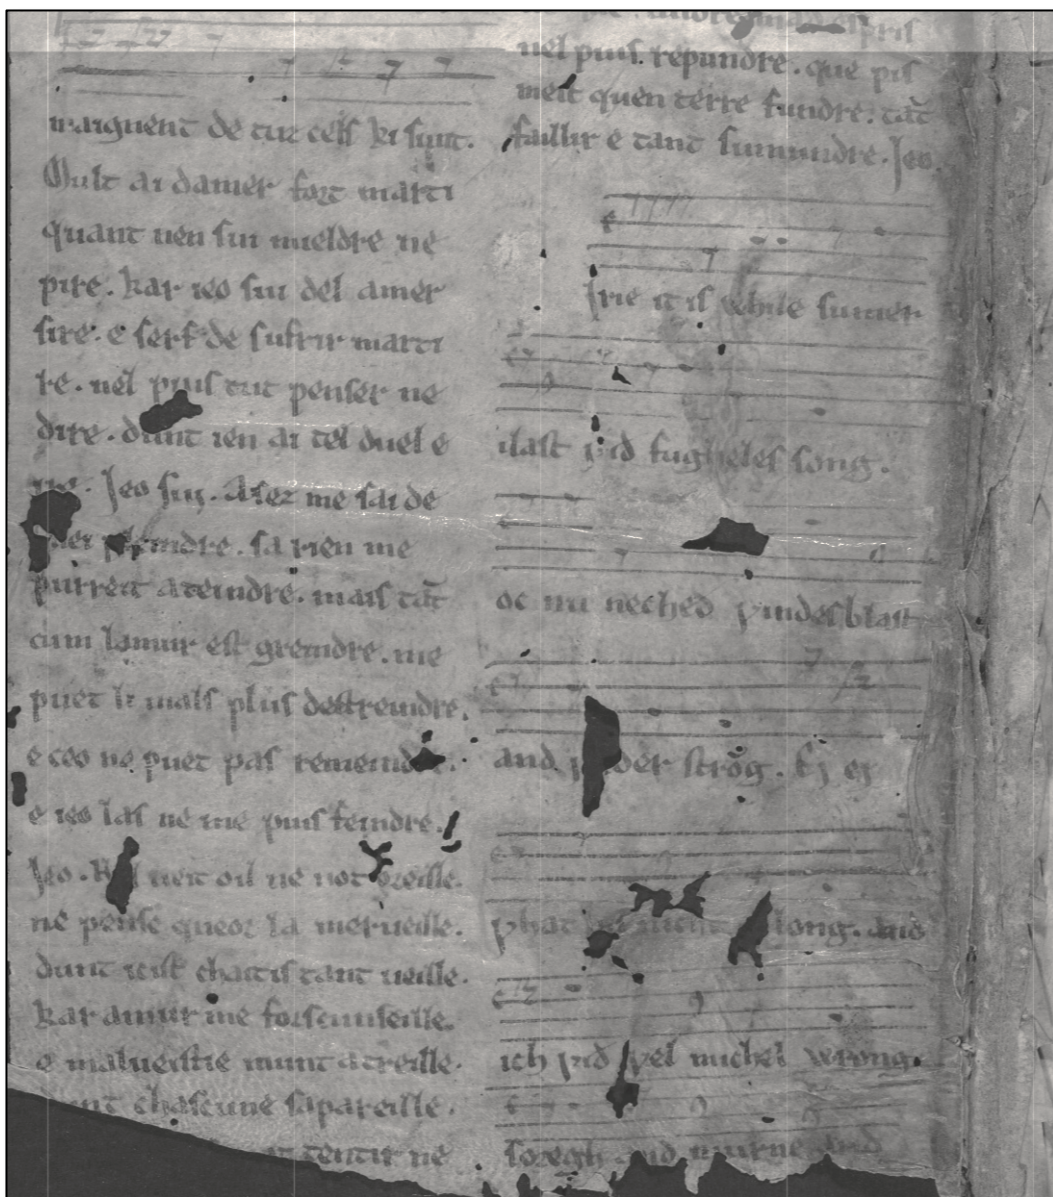 maiguent de tuz cels ki sunt.
Mult ai damer fort marti
quant uen sui mieldre ne
pire. kar ieo sui del amer
sire. e serf de sufrir marti
re. nel puis tut penser ne
dire. dunt ien ai tel duel e
Jeo sui. Asez me sai de
sa rien me
purreit ateindre. mais tāt
cum lamur est greindre. me
puet li mals plus destreindre.
e ceo ne puet pas
e ieo las ne me puis feindre.
Jeo. ueit oil ne not oreille.
ne pense queor la merueille.
dunt icist chaitis tant ueille.
kar amur me forscunseille.
e malueistie munt acreille.
chascune sapareille.
tentir ne
nel puis repundre. que pis
meit quen terre fundre. tāt
faillir e tant sumundre. Jeo.
irie it is ƿhile sumer
ilast ƿið fugheles song.
oc nu neched ƿindes blast
and ƿeder strōg. Ej ej
ƿhat niht long. and
ich ƿið ƿel michel wrong.
soregh and murne and